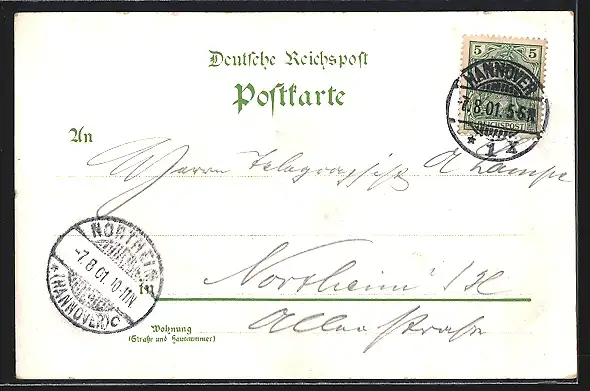 Deutsche Reichspost
Postkarte
5 5
REICHSPOST
HANNOVER
7.8.01. 5-6N
* 1 X
An
Herrn Telegraphist A Lampe
NORTHEIM
-7.8.01.10-11N
*(HANNOVER)C
In
Northeim i/H
Allee straße
Wohnung
(Straße und Hausnummer)